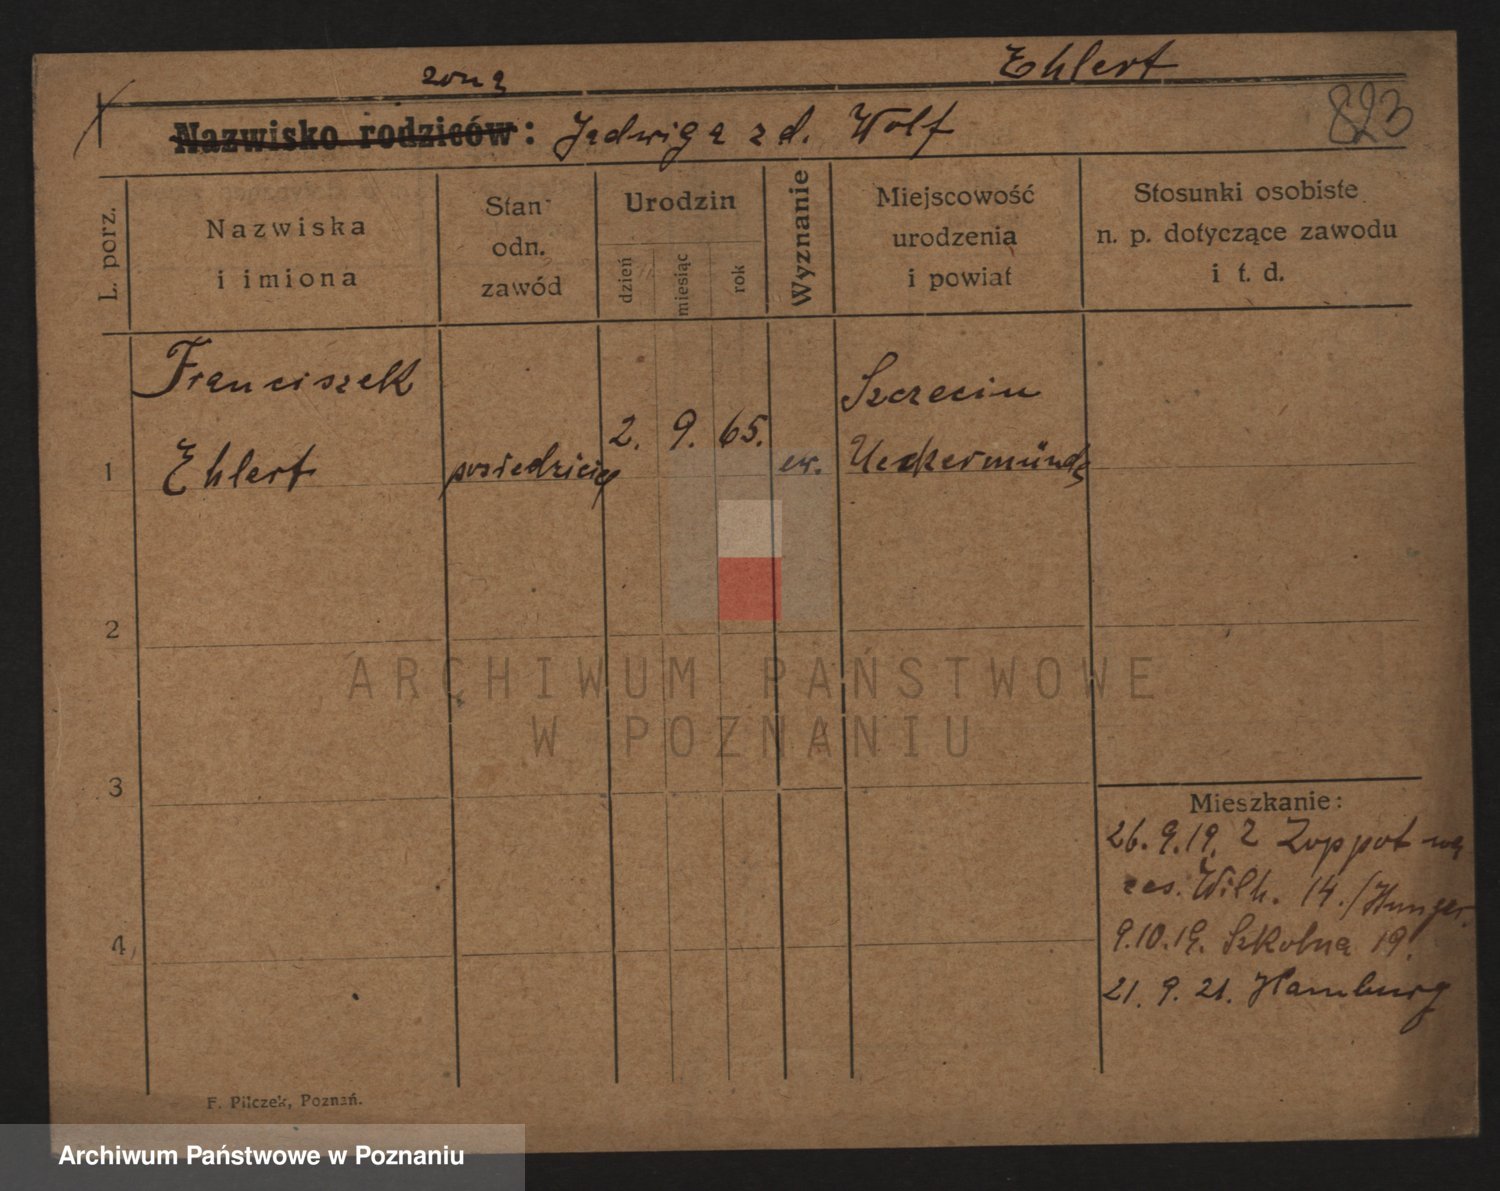 Ehlert
żoną
823
Nazwisko rodziców: Jadwiga z d. Wolf
L. porz.
Nazwiska
i imiona
Stan
odn.
zawód
Urodzin
dzień
miesiąc
rok
Wyznanie
Miejscowość
urodzenia
i powiat
Stosunki osobiste
n. p. dotyczące zawodu
i t. d.
Franciszek
Ehlert
posiedziciel
2. 9. 65.
ew.
Szczecin
Ueckermünde
1
2
3
4
Mieszkanie:
26. 9. 19. Z Zoppot
Wilh. 14. /Hunger.
9. 10. 19. Szkolna 19.
21. 9. 21. Hamburg
F. Pilczek, Poznań.
ARCHIWUM PAŃSTWOWE
W POZNANIU
Archiwum Państwowe w Poznaniu